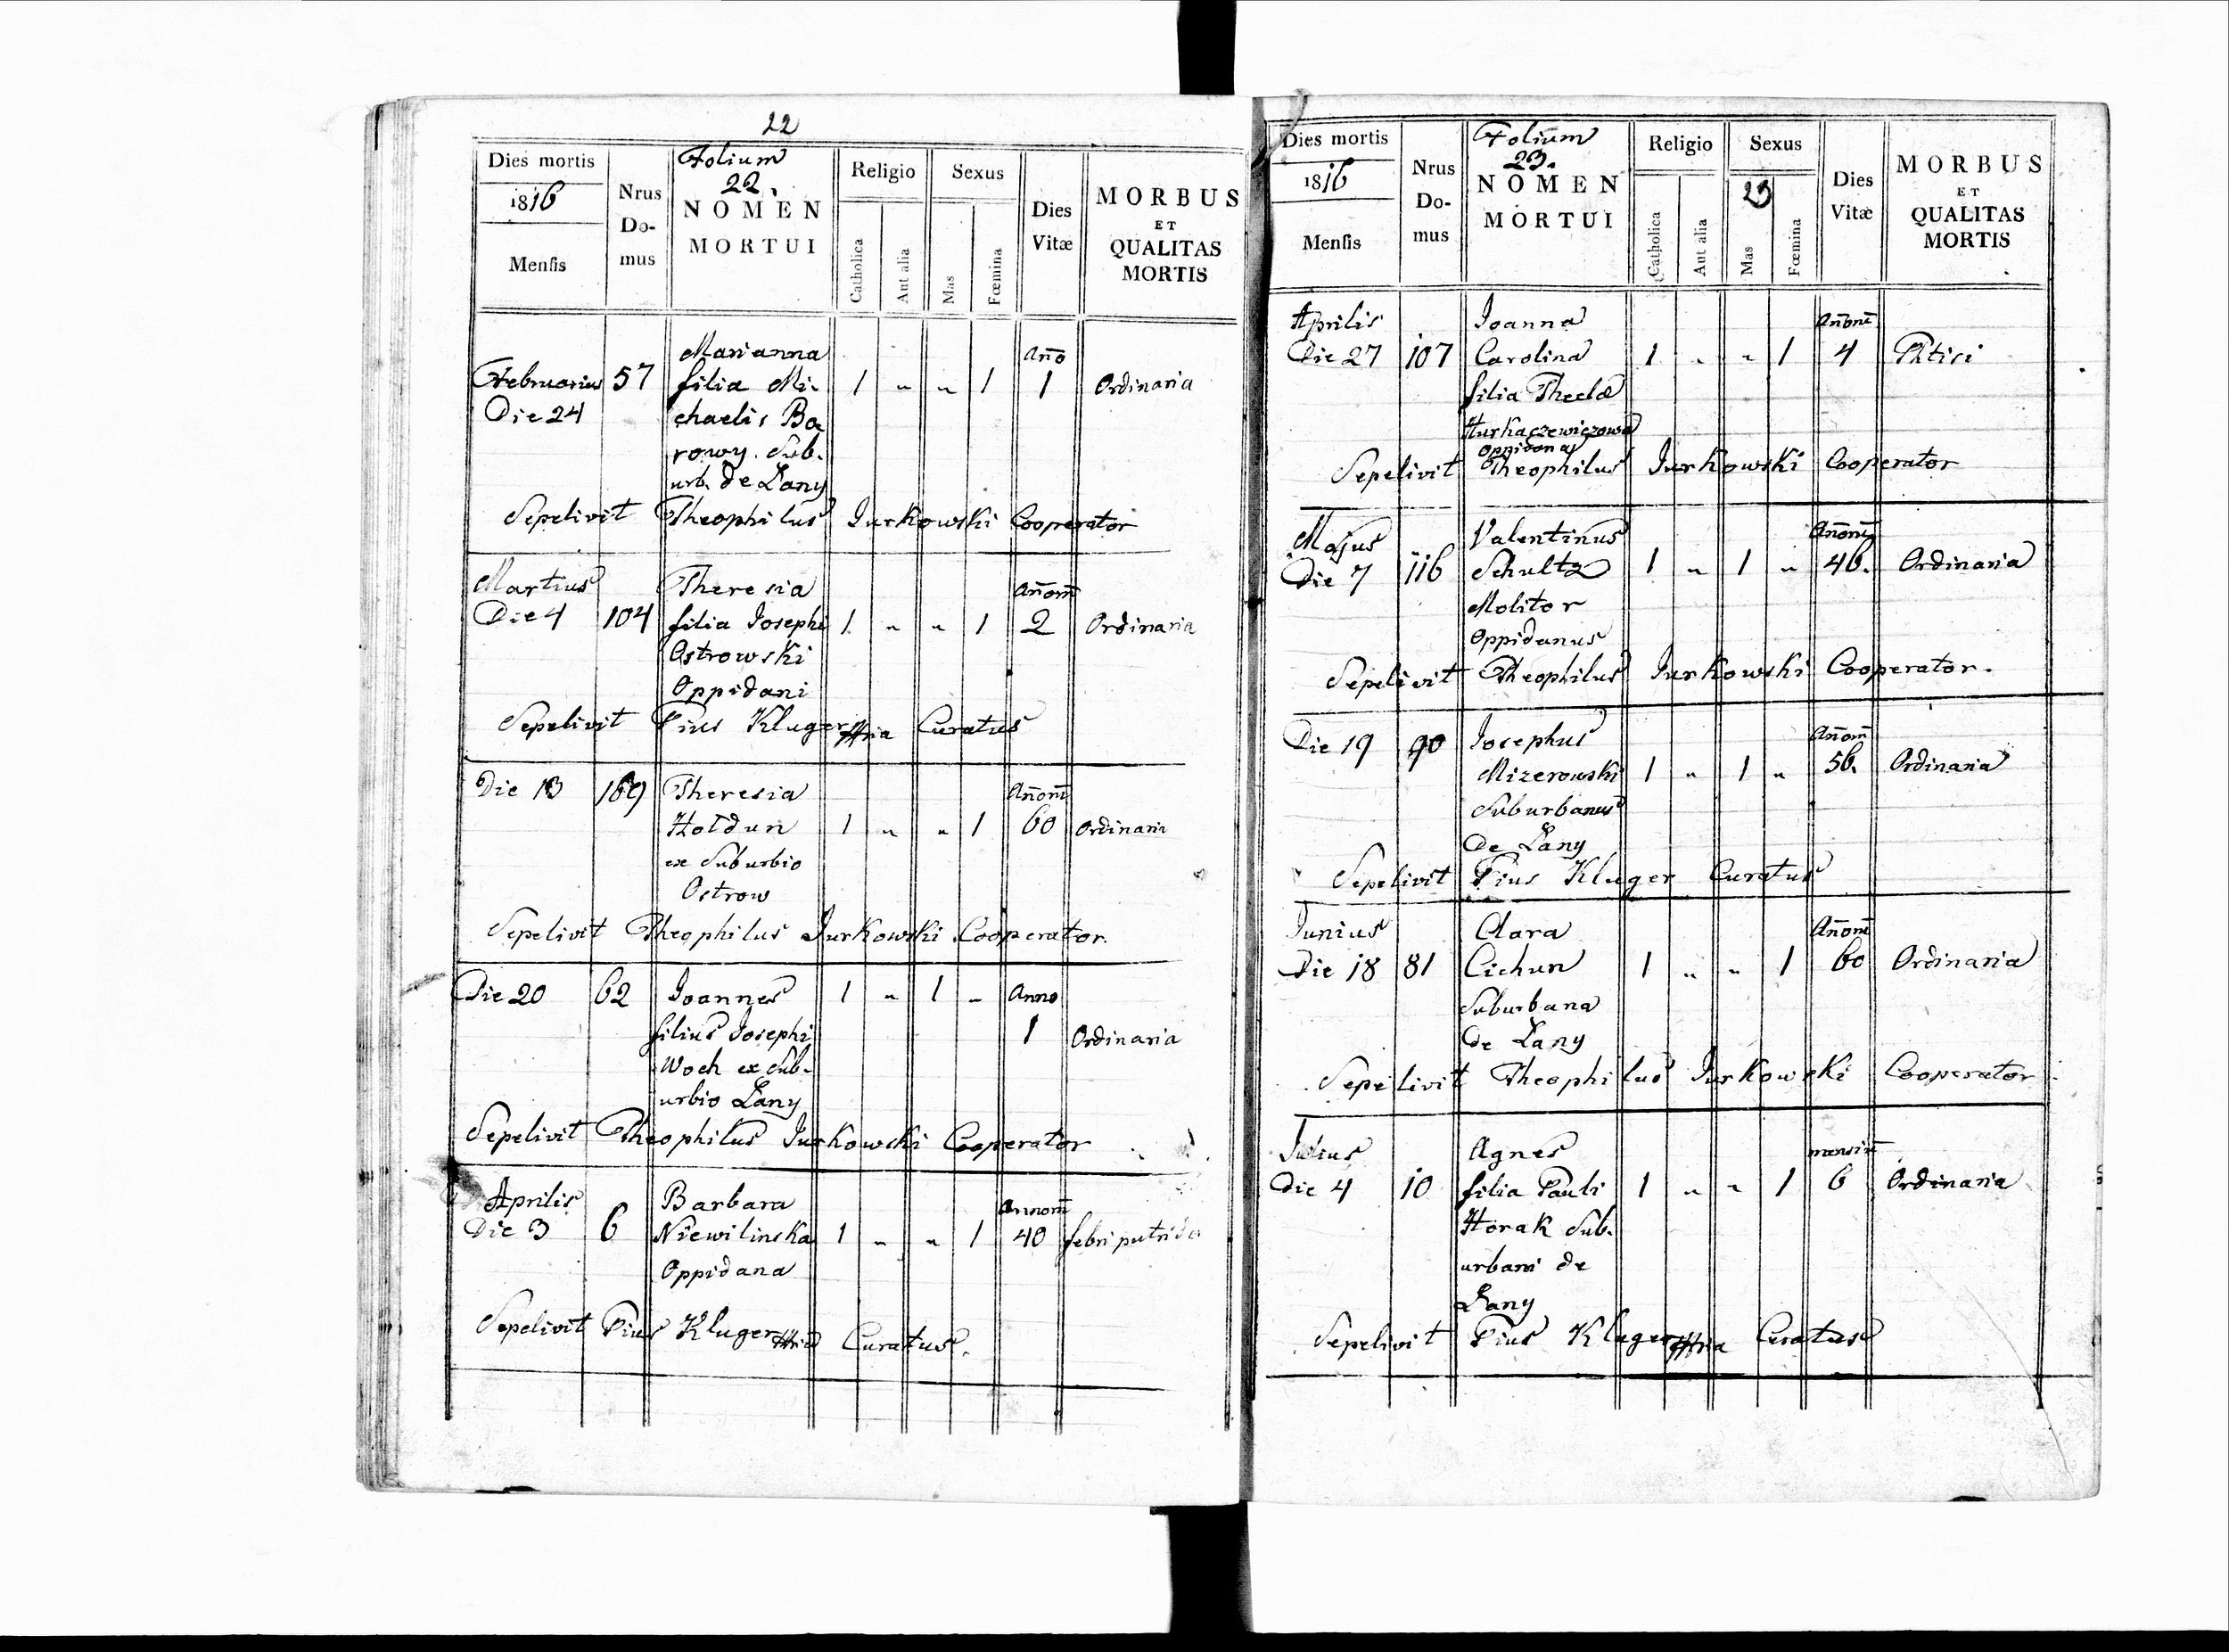 22
Dies mortis
1816
Mensis
Nrus
Do-
mus
Folium
22.
NOMEN
MORTUI
Religio
Catholica
Aut alia
Sexus
Mas
Fœmina
Dies
Vitæ
MORBUS
ET
QUALITAS
MORTIS
Februarius 57 Marianna Año
Die 24 filia Mi- 1 „ „ 1 1 Ordinaria
chaelis Bo
rowy. Sub.
urb. de Łany
Sepelivit Theophilus Jurkowski Cooperator
Martius Theresia Añorū
Die 4 104 filia Josephi 1 „ „ 1 2 Ordinaria
Ostrowski
Oppidani
Sepelivit Pius Kluger Curatus
Die 13 Theresia Añorū
Hołdun 1 „ „ 1 60 Ordinaria
ex Suburbio
Ostrow
Sepelivit Theophilus Jurkowski Cooperator.
Die 20 62 Joannes 1 „ 1 „ Anno
filius Josephi 1 Ordinaria
Woch ex Sub-
urbio Łany
Sepelivit Theophilus Jurkowski Cooperator
Aprilis Barbara Annorū
Die 3 6 Niewilinska 1 „ „ 1 40 febri putrida
Oppidana
Sepelivit Pius Kluger Curatus.
Dies mortis
1816
Mensis
Nrus
Do-
mus
Folium
23.
NOMEN
MORTUI
Religio
Catholica
Aut alia
Sexus
23
Mas
Fœmina
Dies
Vitæ
MORBUS
ET
QUALITAS
MORTIS
Aprilis Joanna Añorū
Die 27 107 Carolina 1 „ „ 1 4 Phtisi
filia Theclæ
Hurkaczewiczowa
Oppidana
Sepelivit Theophilus Jurkowski Cooperator
Majus Valentinus Añorū
Die 7 116 Schultz 1 „ 1 „ 46. Ordinaria
Molitor
Oppidanus
Sepelivit Theophilus Jurkowski Cooperator.
Die 19 90 Josephus Añorū
Mizerowski 1 „ 1 „ 56. Ordinaria
Suburbanus
de Łany
Sepelivit Pius Kluger Curatus
Junius Clara Añorū
Die 18 81 Cichun 1 „ „ 1 60 Ordinaria
Suburbana
de Łany
Sepelivit Theophilus Jurkowski Cooperator
Julius Agnes mensiū
Die 4 10 filia Pauli 1 „ „ 1 6 Ordinaria
Horak Sub-
urbani de
Łany
Sepelivit Pius Kluger Curatus